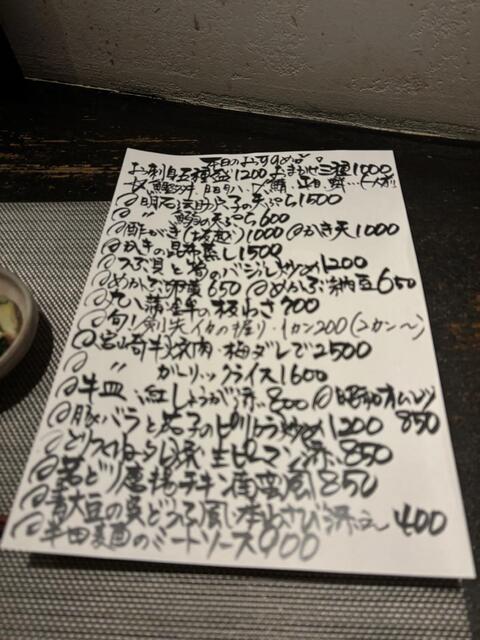 本日のおすすめ
お刺身五種盛1200 おまかせ三種1000
〆鯖
@明石 穴子の天ぷら1500
@〃 の天ぷら600
@酢がき(坂越)1000 @かき天1000
@かきの昆布蒸し1500
@つぶ貝と筍のバジル炒め1200
@めかぶ卵黄650 @めかぶ納豆650
@八蒲鉾の板わさ700
@旬!剣先イカの握り・1カン200(2カン〜)
@宮崎牛焼肉・梅ダレで2500
@〃 ガーリックライス1600
@牛皿 紅しょうが添 800 @昭和オムレツ
@豚バラと茄子のピリカラ炒め1200 850
@とりつくね 生ピーマン添 850
@若どり唐揚チキン南蛮風850
@青大豆の 豆どうふ風・本わさび添え 400
@半田麺のミートソース900